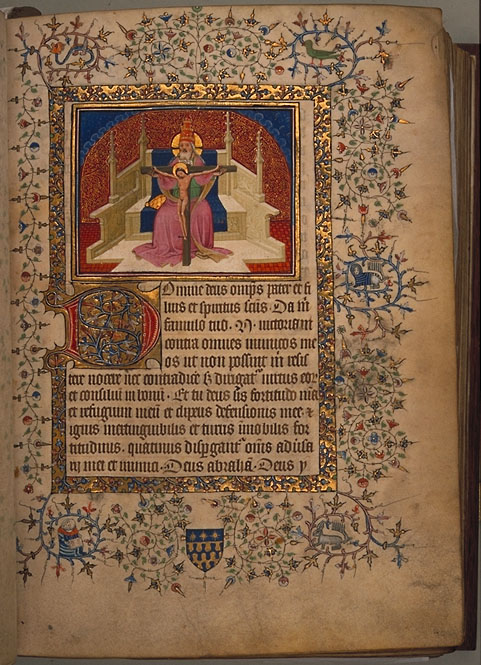 Domine deus omps pater et fi
lius et spiritus scūs. Da m
famulo tuo. N. victoriam
contra omnes inimicos me
os ut non possint m resis
tere nocere nec contradicē s; dirigat' virtus eor
et consiliū in bonū. Et tu deus sis fortitudo mea
et refugium meū et clipeus defensionis mee &
ignis inextinguibilis et turris īmobilis for
titudinis. quatinus dispgant' oms adūsa
rij mei et inimici. Deus abrahā. Deus y